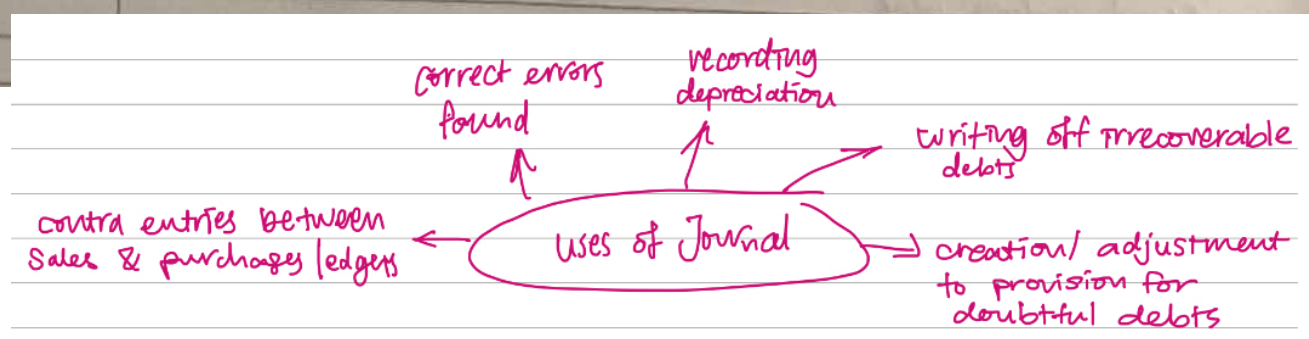 correct errors
found
recording
depreciation
writing off irrecoverable
debts
contra entries between
Sales & purchases ledgers
Uses of Journal
creation/ adjustment
to provision for
doubtful debts